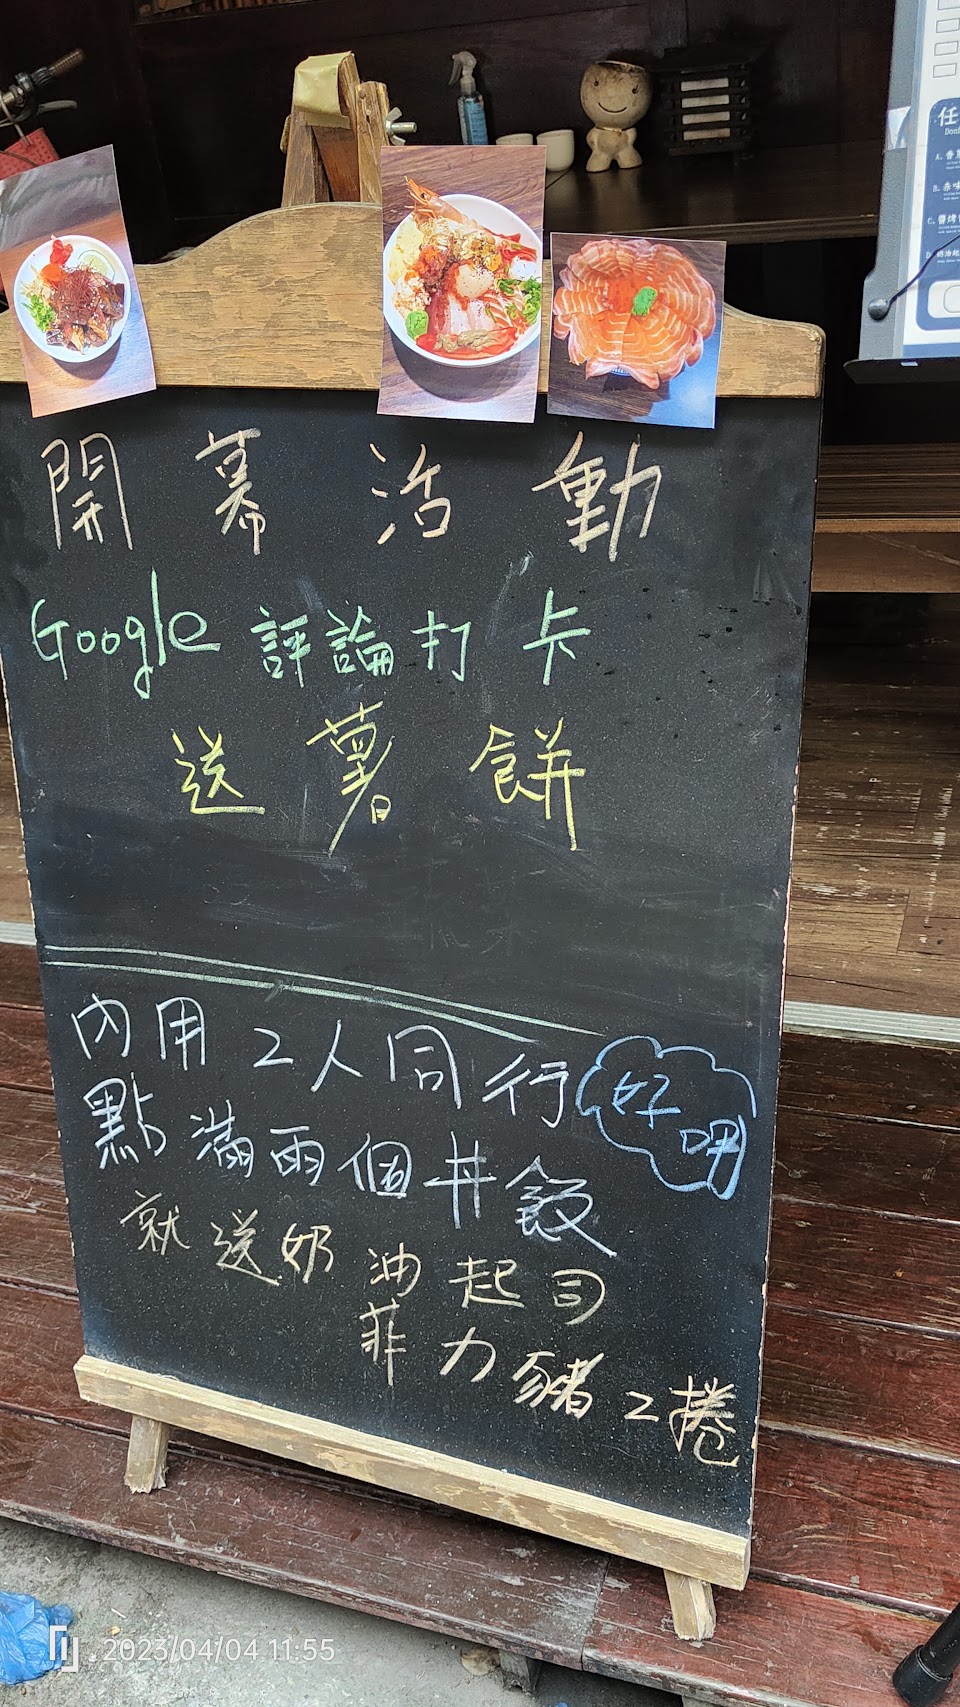 開幕活動
Google 評論打卡
送薯餅
內用2人同行
好呷
點滿兩個丼飯
就送奶油起司
菲力豬2捲
任
2023/04/04 11:55